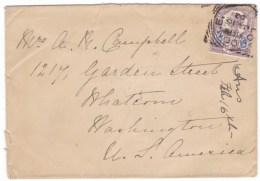 Mrs A. M. Campbell
1217, Garden Street
Whatcom
Washington
U. S. America
Ans